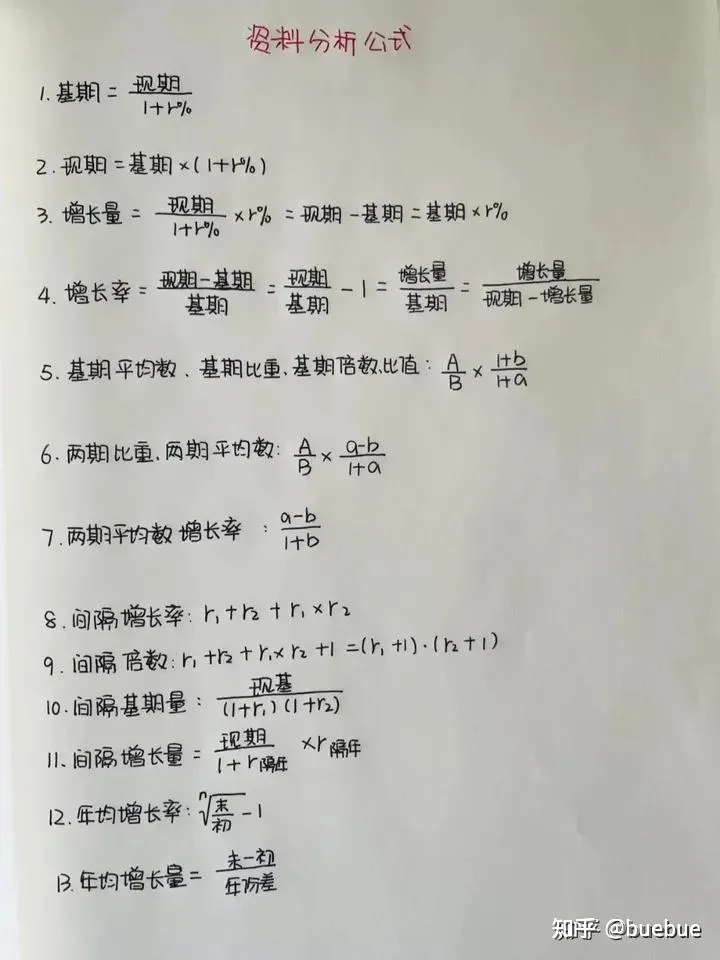 资料分析公式
1.基期 = 现期/(1+r%)
2.现期=基期×(1+r%)
3. 增长量 = 现期/(1+r%) ×r% =现期-基期=基期×r%
4. 增长率 = (现期-基期)/基期 = 现期/基期 - 1 = 增长量/基期 = 增长量/(现期-增长量)
5. 基期平均数、基期比重、基期倍数、比值: A/B × (1+b)/(1+a)
6.两期比重、两期平均数: A/B × (a-b)/(1+a)
7.两期平均数增长率 : (a-b)/(1+b)
8.间隔增长率: r₁+r₂+r₁×r₂
9.间隔倍数: r₁+r₂+r₁×r₂+1 =(r₁+1)·(r₂+1)
10.间隔基期量: 现基/(1+r₁)(1+r₂)
11、间隔增长量 = 现期/(1+r隔年) ×r隔年
12.年均增长率: ⁿ√(末/初) -1
13.年均增长量= (末-初)/年份差
知乎 @buebue